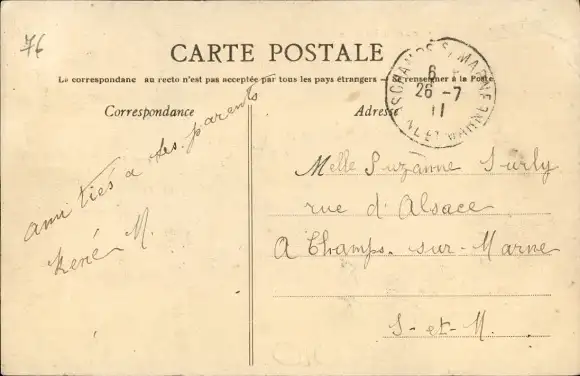 76
CARTE POSTALE
La correspondance au recto n'est pas acceptée par tous les pays étrangers — Se renseigner à la Poste
Correspondance
Adresse
CHAMPS S. MARNE
6
26 -7
11
SNE ET MARNE
amitiés a tes parents
René M.
Melle Suzanne Surly
rue d'Alsace
A Champs-sur-Marne
S-et-M.